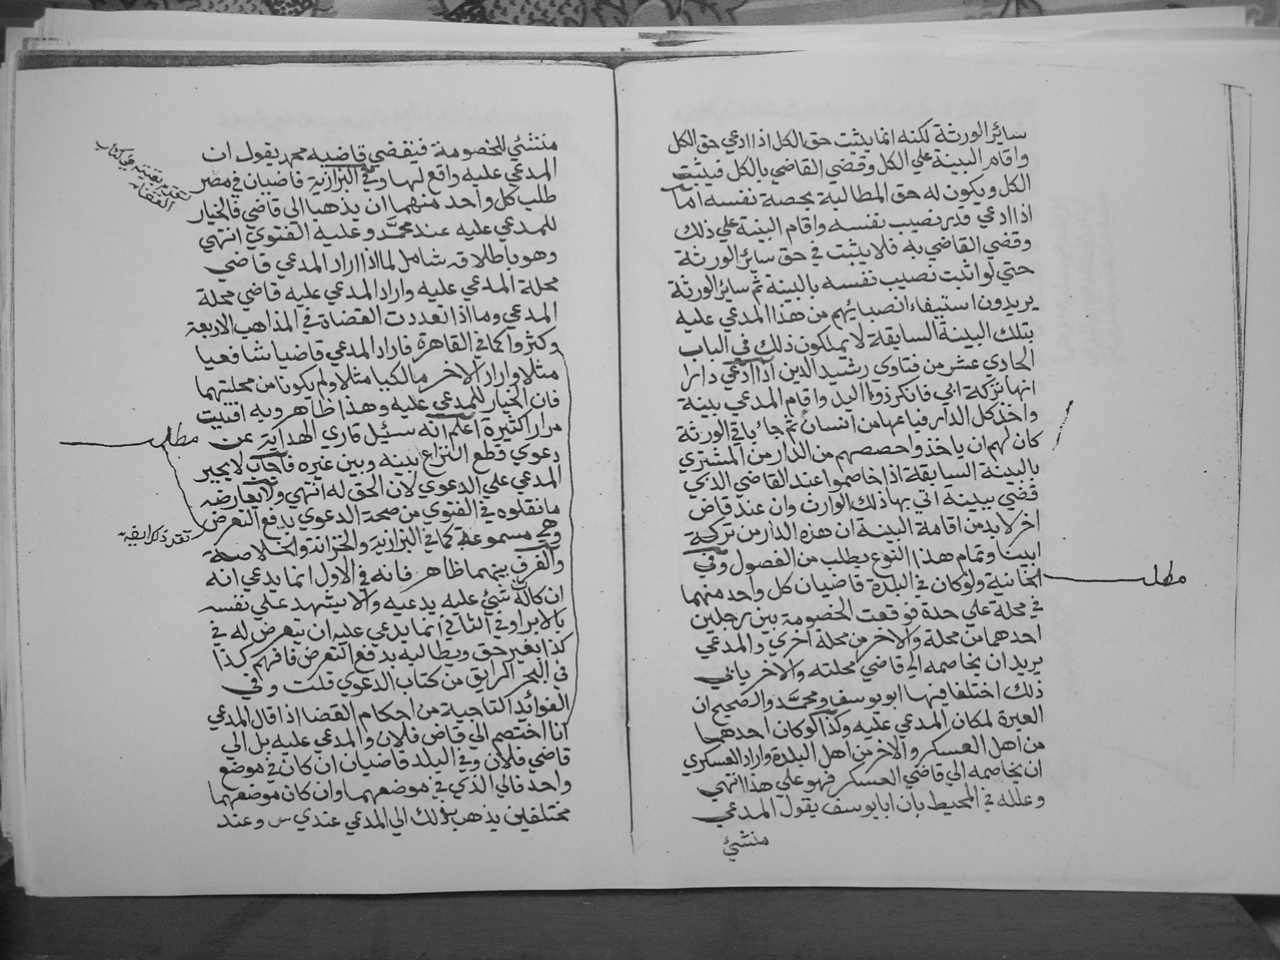 سائر الورثة لكنه انما يثبت حق الكل اذا ادعي حق الكل
واقام البينة علي الكل وقضي القاضي بالكل فيثبت
الكل ويكون له حق المطالبة بحصة نفسه اما
اذا ادعي قدر نصيب نفسه واقام البينة علي ذلك
وقضي القاضي به فلا يثبت في حق سائر الورثة
حتي لو اثبت نصيب نفسه بالبينة ثم سائر الورثة
يريدون استيفاء انصبائهم من هذا المدعي عليه
بتلك البينة السابقة لا يملكون ذلك في الباب
الحادي عشر من فتاوي رشيد الدين اذا ادعي دارا
انها تركة ابي فانكر ذو اليد واقام المدعي بينة
واخذ كل الدار فباعها من انسان ثم جاء باقي الورثة
كان لهم ان ياخذوا حصصهم من الدار من المشتري
بالبينة السابقة اذا خاصموا عند القاضي الذي
قضي ببينة اتي بها ذلك الوارث وان عند قاض
اخر لا بد من اقامة البينة ان هذه الدار من تركة
ابينا وتمام هذا النوع يطلب من الفصول وفي
الخانية ولو كان في البلدة قاضيان كل واحد منهما
مطلب
في محلة علي حدة فوقعت الخصومة بين رجلين
احدهما من محلة والاخر من محلة اخري والمدعي
يريد ان يخاصمه الي قاضي محلته والاخر يابي
ذلك اختلفا فيها ابو يوسف ومحمد والصحيح ان
العبرة لمكان المدعي عليه وكذا لو كان احدهما
من اهل العسكر والاخر من اهل البلدة واراد العسكري
ان يخاصمه الي قاضي العسكر فهو علي هذا انتهي
وعلله في المحيط بان ابا يوسف يقول المدعي
منشئ
منشئ للخصومة فيقضي قاضيه محمد يقول ان
المدعي عليه واقع لها وفي البزازية قاضيان في مصر
طلب كل واحد منهما ان يذهب الي قاضي فالخيار
للمدعي عليه عند محمد وعليه الفتوي انتهي
وهو باطلاقه شامل لما اذا اراد المدعي قاضي
محلة المدعي عليه واراد المدعي عليه قاضي محلة
المدعي وما اذا تعددت القضاة في المذاهب الاربعة
وكثروا كما في القاهرة فاراد المدعي قاضيا شافعيا
مثلا واراد الاخر مالكيا مثلا ولم يكونا من محلتهما
فان الخيار للمدعي عليه وهذا ظاهر وبه افتيت
مرارا كثيرة اعلم انه سئل قاري الهداية عن
مطلب
دعوي قطع النزاع بينه وبين غيره فاجاب لا يجبر
المدعي علي الدعوي لان الحق له انتهي ولا يعارضه
ما نقلوه في الفتوي من صحة الدعوي بدفع التعرض
وهي مسموعة كما في البزازية والخزانة والخلاصة
والفرق بينهما ظاهر فانه في الاول انما يدعي انه
ان كان له شئ عليه يدعيه والا يشهد علي نفسه
بالابرا وفي الثاني انما يدعي عليه ان يتعرض له في
كذا بغير حق ويطالبه بدفع التعرض فافهم كذا
في البحر الرايق من كتاب الدعوي قلت وفي
الفوائد التاجية من احكام القضا اذا قال المدعي
انا اختصم الي قاض فلان والمدعي عليه بل الي
قاضي فلان وفي البلد قاضيان ان كان في موضع
واحد فالي الذي في موضعهما وان كان موضعهما
مختلفين يذهب بذلك الي المدعي عندي س وعند